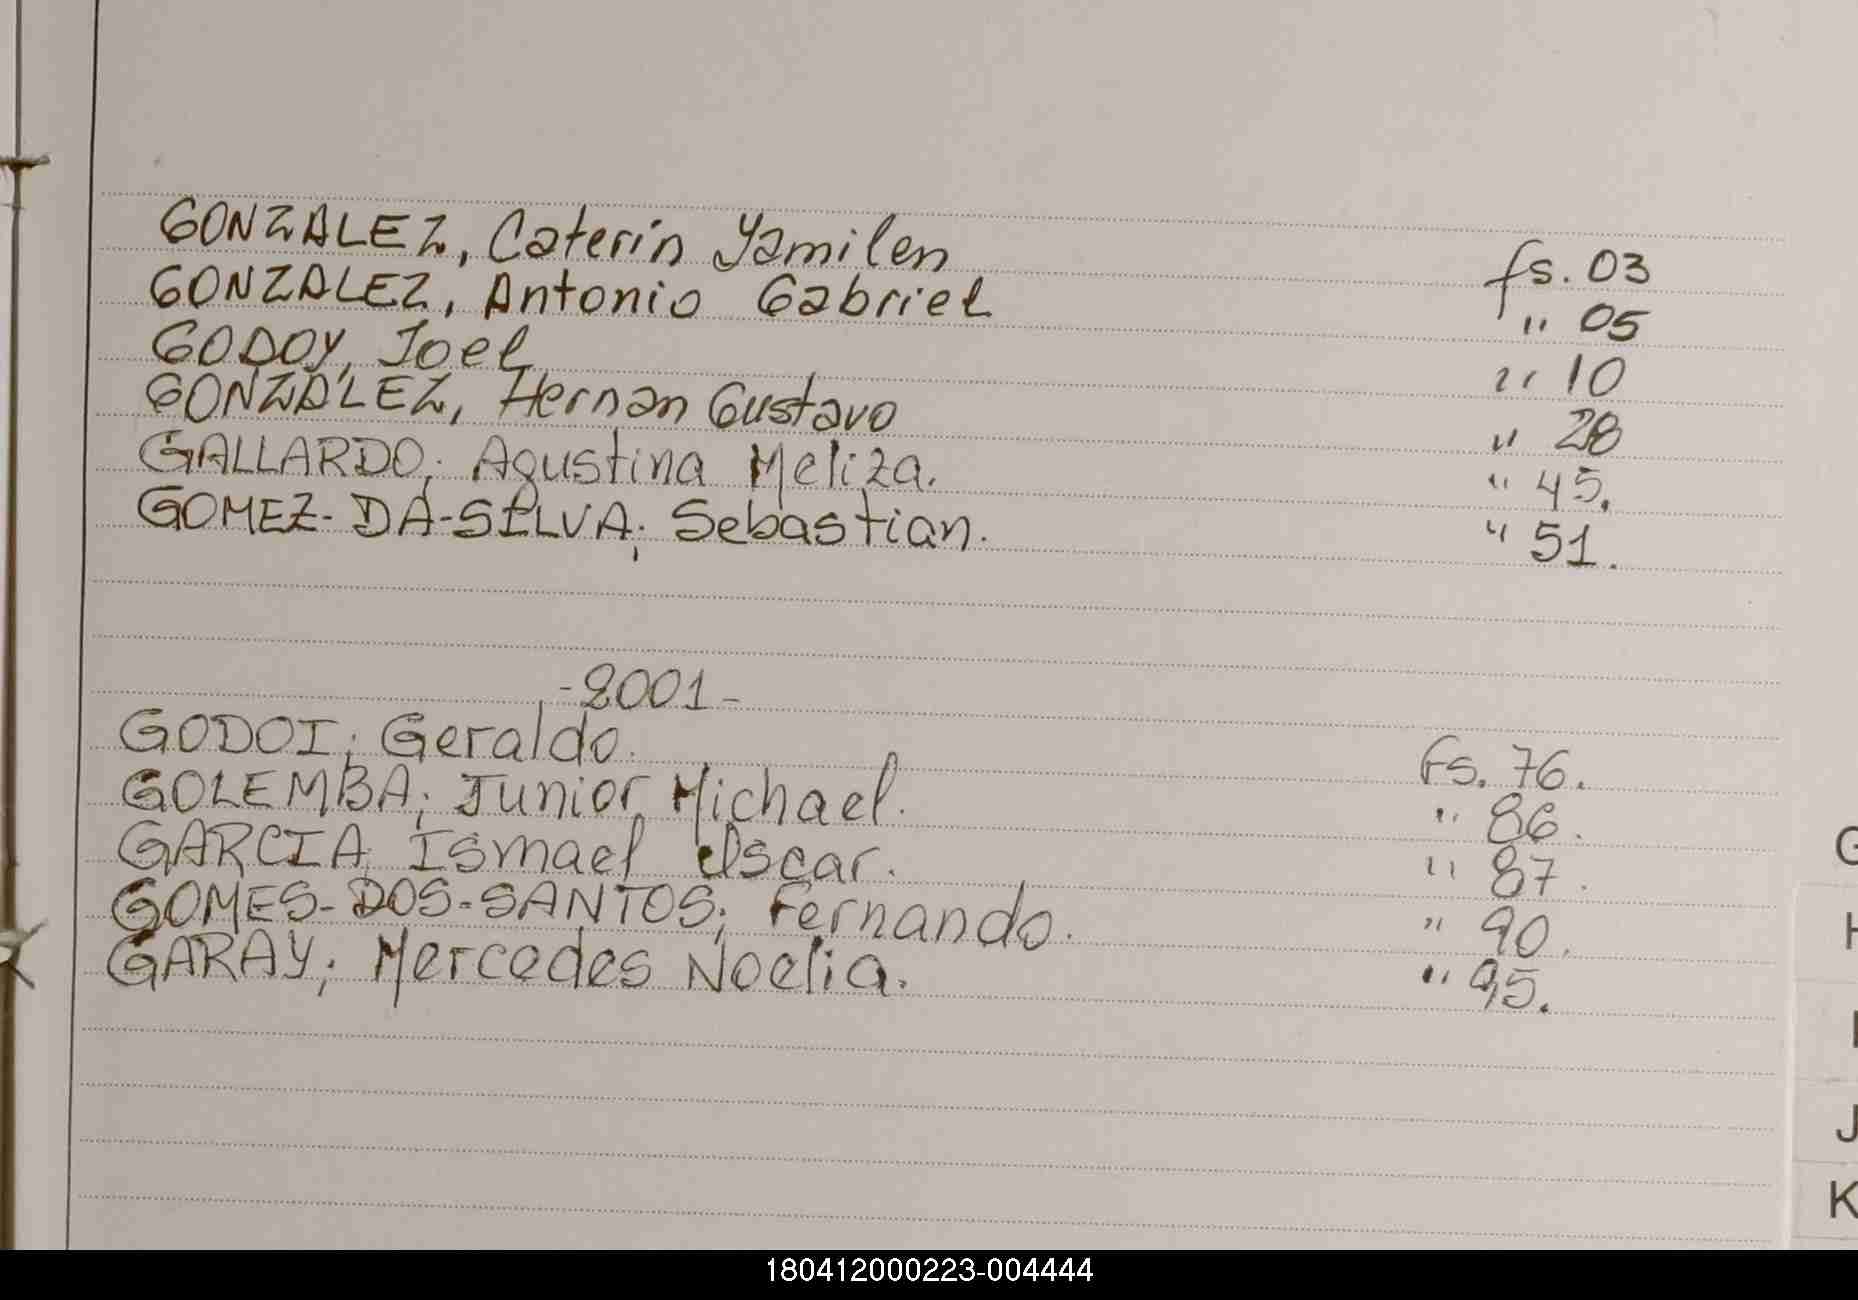 GONZALEZ, Caterin Yamilen fs. 03
GONZALEZ, Antonio Gabriel " 05
GODOY, Joel " 10
GONZALEZ, Hernan Gustavo " 28
GALLARDO; Agustina Meliza. " 45.
GOMEZ-DA-SILVA; Sebastian. " 51.
-2001-
GODOI; Geraldo. Fs. 76.
GOLEMBA; Junior Michael. " 86.
GARCIA; Ismael Oscar. " 87.
GOMES-DOS-SANTOS; Fernando. " 90.
GARAY; Mercedes Noelia. " 95.
G
H
I
J
K
180412000223-004444